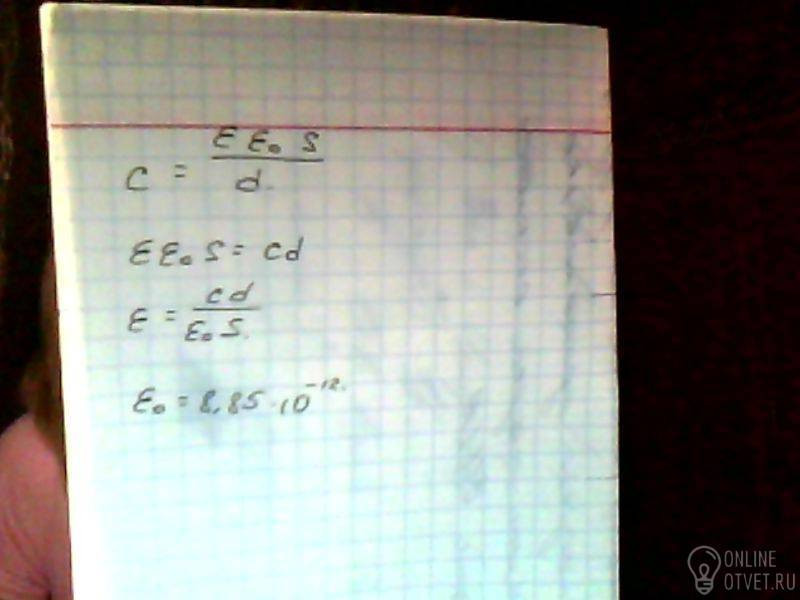 C = ε ε₀ S / d
ε ε₀ S = cd
ε = cd / ε₀ S
ε₀ = 8,85 · 10⁻¹²
ONLINE
OTVET.RU